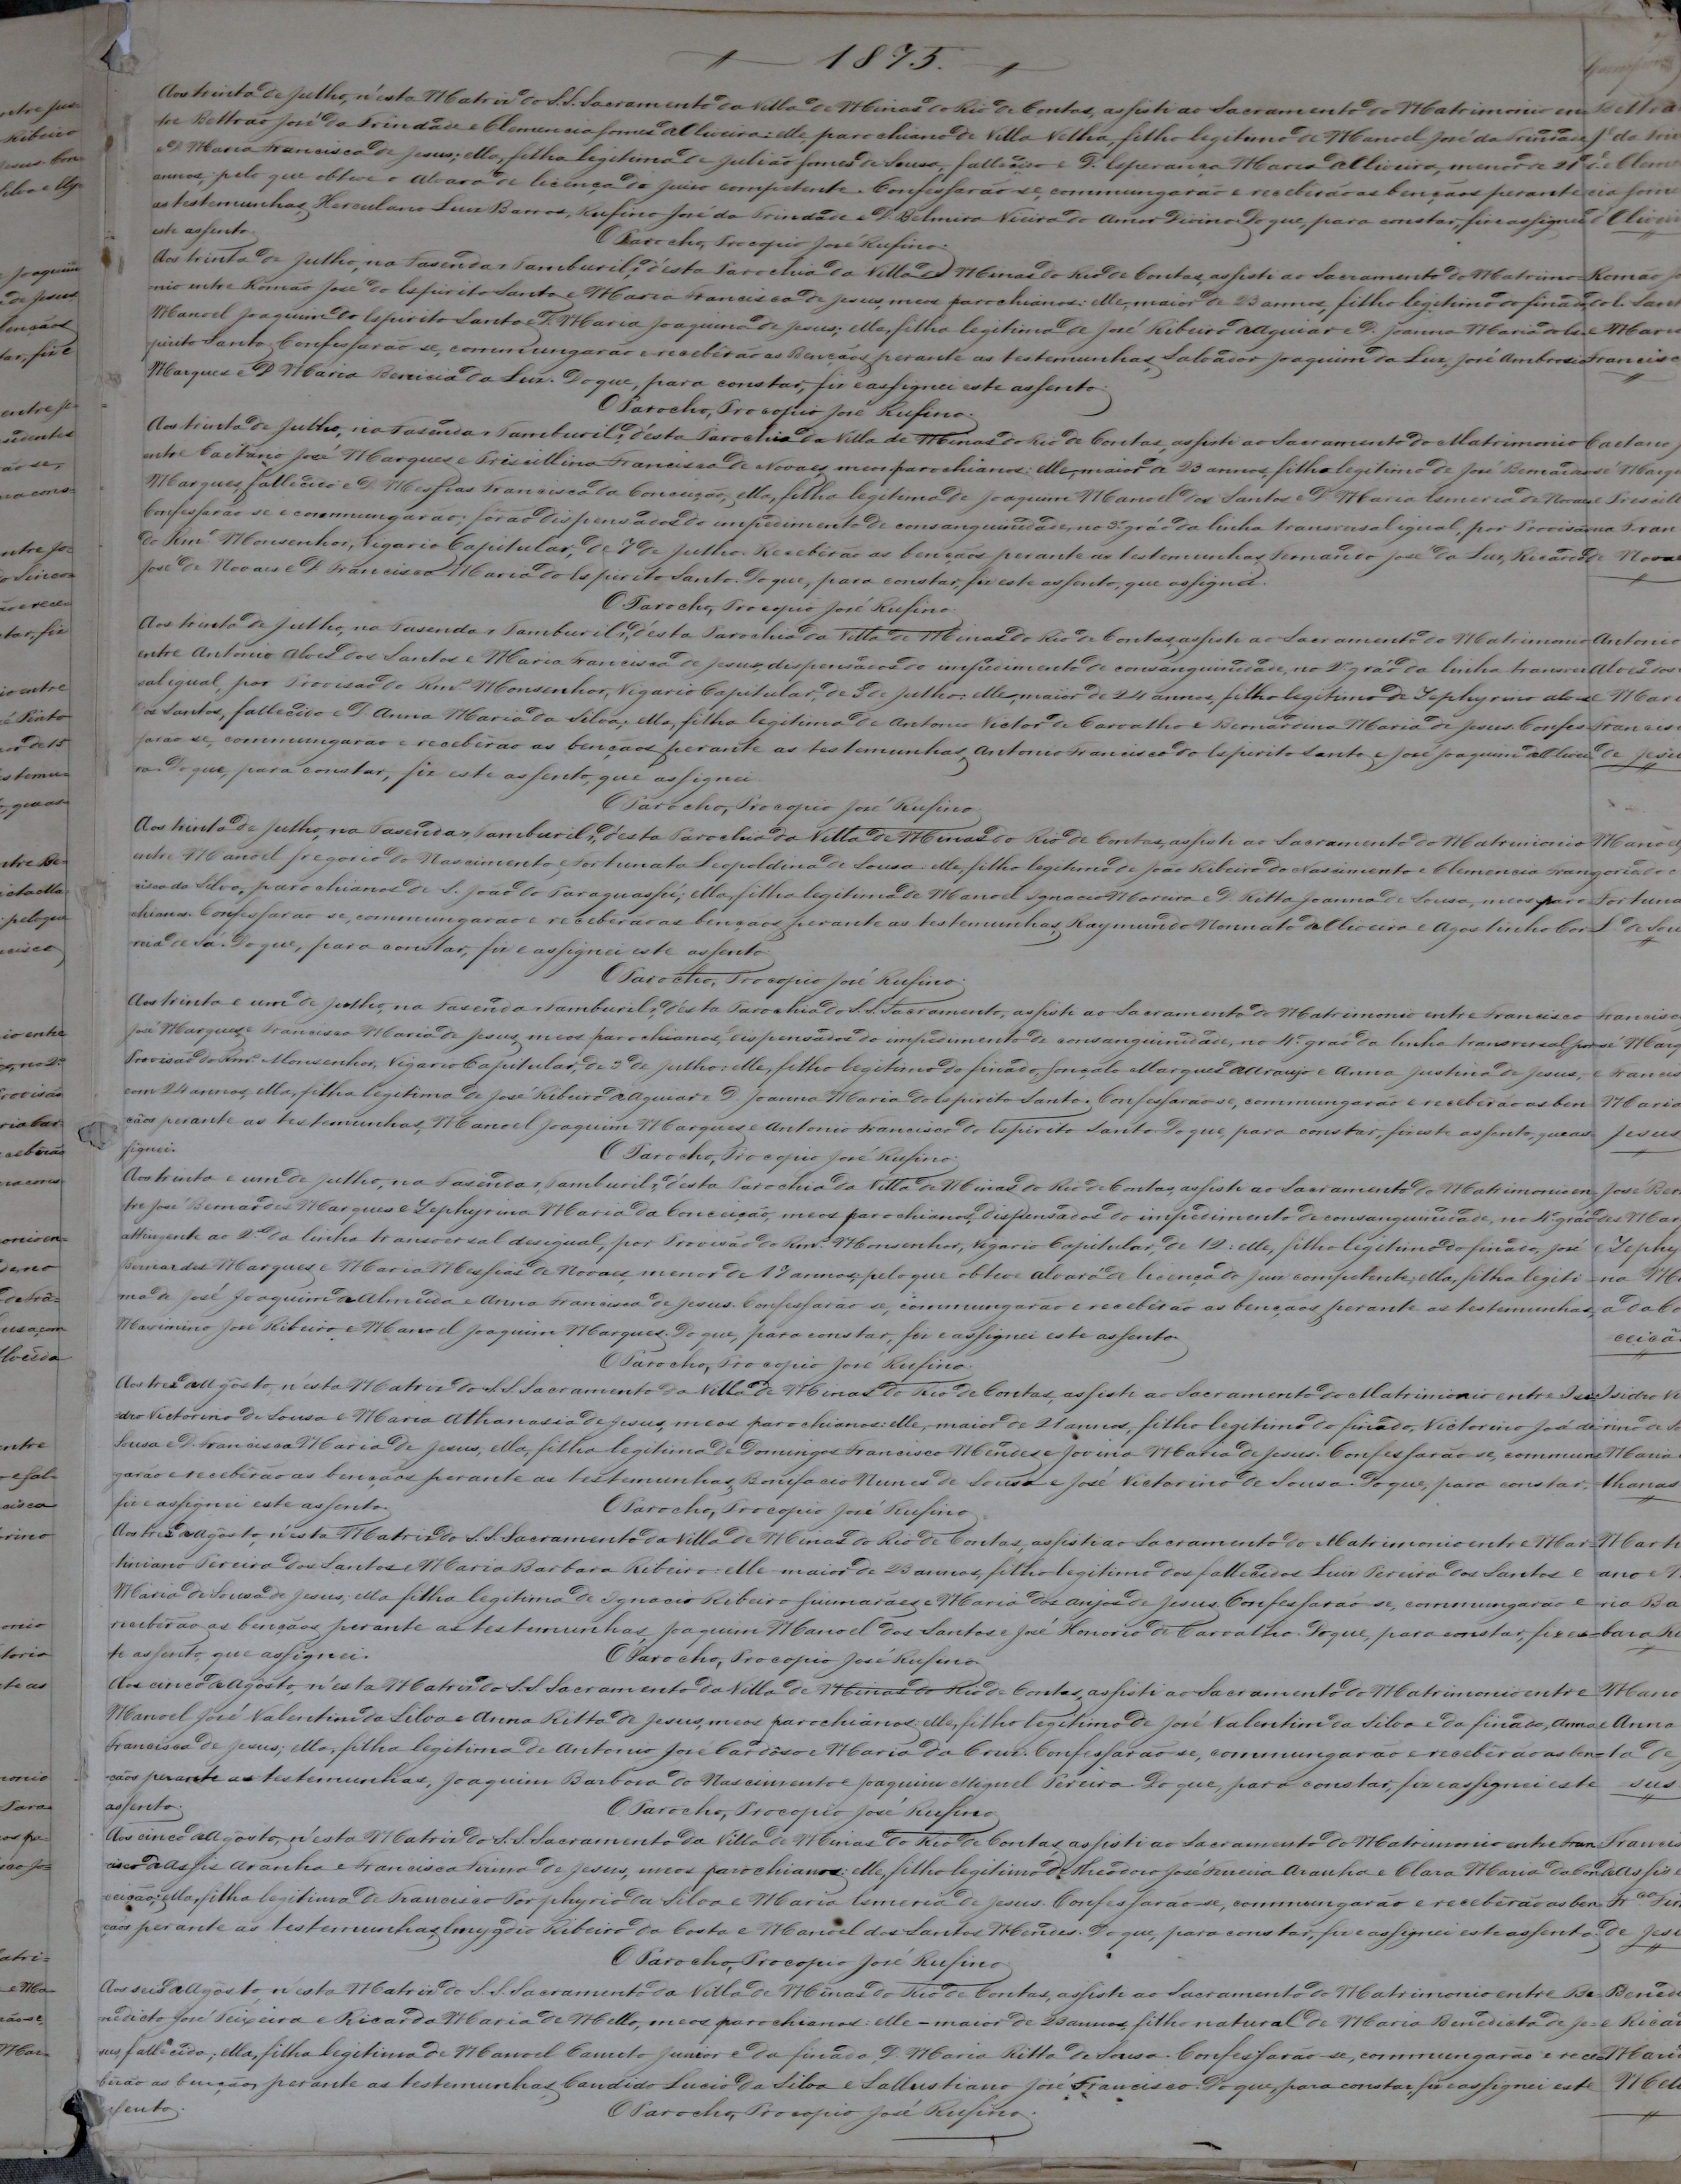 1875.
Aos trinta de Julho, n'esta Matriz do S.S. Sacramento da Villa de Minas do Rio de Contas, assisti ao Sacramento do Matrimonio en-
tre Beltrão José da Trindade e Clemencia Gomes d'Oliveira: elle, parochiano de Villa Velha, filho legitimo de Manoel José da Trindade
e D. Maria Francisca de Jesus; ella, filha legitima de Julião Gomes de Sousa, fallecido e D. Esperança Maria d'Oliveira, menor de 21
annos; pelo que obteve o alvará de licença do Juizo competente. Confessarão-se, commungarão e receberão as bençãos perante
as testemunhas, Herculano Luiz Barros, Rufino José da Trindade e D. Belmira Vieira do Amor Divino. Do que, para constar, fiz e assignei
este assento.
O Parocho, Procopio José Rufino.
Aos trinta de Julho, na Fasenda "Tamburil", d'esta Parochia da Villa de Minas do Rio de Contas, assisti ao Sacramento do Matrimo-
nio entre Romão José do Espirito Santo e Maria Francisca de Jesus, meos parochianos: elle, maior de 23 annos, filho legitimo do finado,
Manoel Joaquim do Espirito Santo e D. Maria Joaquina de Jesus; ella, filha legitima de José Ribeiro d'Aguiar e D. Joanna Maria do Es-
pirito Santo. Confessarão-se, commungarão e receberão as Bençãos perante as testemunhas, Salvador Joaquim da Luz, José Ambrosio
Marques e D. Maria Benicia da Luz. Do que, para constar, fiz e assignei este assento.
O Parocho, Procopio José Rufino.
Aos trinta de Julho, na Fasenda "Tamburil", d'esta Parochia da Villa de Minas do Rio de Contas, assisti ao Sacramento do Matrimonio
entre Caitano José Marques e Priscillina Francisca de Novaes, meos parochianos: elle, maior de 23 annos, filho legitimo de José Bernardes
Marques, fallecido e D. Messias Francisca da Conceição; ella, filha legitima de Joaquim Manoel dos Santos e D. Maria Esmeria de Novaes.
Confessarão-se e commungarão; forão dispensados do impedimento de consanguinidade, no 3º gráo da linha transversal igual, por Provisão
do Rmº Monsenhor, Vigario Capitular, de 7 de Julho. Receberão as bençãos perante as testemunhas, Fernando José da Luz, Ricardo
José de Novaes e D. Francisca Maria do Espirito Santo. Do que, para constar, fiz este assento, que assignei.
O Parocho, Procopio José Rufino.
Aos trinta de Julho, na Fasenda "Tamburil", d'esta Parochia da Villa de Minas do Rio de Contas, assisti ao Sacramento do Matrimonio
entre Antonio Alves dos Santos e Maria Francisca de Jesus, dispensados do impedimento de consanguinidade, no 2º gráo da linha transver-
sal igual, por Provisão do Rmº Monsenhor, Vigario Capitular, de 3 de Julho: elle, maior de 24 annos, filho legitimo de Zephyrino Alves
dos Santos, fallecido e D. Anna Maria da Silva; ella, filha legitima de Antonio Victor de Carvalho e Bernardina Maria de Jesus. Confes-
sarão-se, commungarão e receberão as bençãos perante as testemunhas, Antonio Francisco do Espirito Santo e José Joaquim d'Olivei-
ra. Do que, para constar, fiz este assento, que assignei.
O Parocho, Procopio José Rufino.
Aos trinta de Julho, na Fasenda "Tamburil", d'esta Parochia da Villa de Minas do Rio de Contas, assisti ao Sacramento do Matrimonio
entre Manoel Gregorio do Nascimento e Fortunata Leopoldina de Sousa: elle, filho legitimo de João Ribeiro do Nascimento e Clemencia Fran-
cisca da Silva, parochianos de S. João do Paraguassú; ella, filha legitima de Manoel Ignacio Moreira e D. Ritta Joanna de Sousa, meos paro-
chianos. Confessarão-se, commungarão e receberão as bençãos perante as testemunhas, Raymundo Nonnato d'Oliveira e Agostinho Cor-
reia de Sá. Do que, para constar, fiz e assignei este assento.
O Parocho, Procopio José Rufino.
Aos trinta e um de Julho, na Fasenda "Tamburil", d'esta Parochia do S.S. Sacramento, assisti ao Sacramento do Matrimonio entre Francisco
José Marques e Francisca Maria de Jesus, meos parochianos, dispensados do impedimento de consanguinidade, no 4º gráo da linha transversal, por
Provisão do Rmº Monsenhor, Vigario Capitular, de 3 de Julho: elle, filho legitimo do finado, Gonçalo Marques d'Araujo e Anna Justina de Jesus,
com 24 annos; ella, filha legitima de José Ribeiro d'Aguiar e D. Joanna Maria do Espirito Santo. Confessarão-se, commungarão e receberão as ben-
çãos perante as testemunhas, Manoel Joaquim Marques e Antonio Francisco do Espirito Santo. Do que, para constar, fiz este assento, que as-
signei.
O Parocho, Procopio José Rufino.
Aos trinta e um de Julho, na Fasenda "Tamburil", d'esta Parochia da Villa de Minas do Rio de Contas, assisti ao Sacramento do Matrimonio en-
tre José Bernardes Marques e Zephyrina Maria da Conceição, meos parochianos, dispensados do impedimento de consanguinidade, no 4º gráo
attingente ao 2º da linha transversal desigual, por Provisão do Rmº Monsenhor, Vigario Capitular, de 12: elle, filho legitimo do finado, José
Bernardes Marques e Maria Messias de Novaes, menor de 17 annos, pelo que obteve alvará de licença do Juiz competente; ella, filha legiti-
ma de José Joaquim d'Almeida e Anna Francisca de Jesus. Confessarão-se, commungarão e receberão as bençãos perante as testemunhas,
Maximino José Ribeiro e Manoel Joaquim Marques. Do que, para constar, fiz e assignei este assento.
O Parocho, Procopio José Rufino.
Aos tres d'Agosto, n'esta Matriz do S.S. Sacramento da Villa de Minas do Rio de Contas, assisti ao Sacramento do Matrimonio entre Isi-
dro Victorino de Sousa e Maria Athanasia de Jesus, meos parochianos: elle, maior de 21 annos, filho legitimo do finado, Victorino José de
Sousa e D. Francisca Maria de Jesus; ella, filha legitima de Domingos Francisco Mendes e Jovina Maria de Jesus. Confessarão-se, commun-
garão e receberão as bençãos perante as testemunhas, Bonifacio Nunes de Sousa e José Victorino de Sousa. Do que, para constar,
fiz e assignei este assento.
O Parocho, Procopio José Rufino.
Aos tres d'Agosto, n'esta Matriz do S.S. Sacramento da Villa de Minas do Rio de Contas, assisti ao Sacramento do Matrimonio entre Mar-
tiniano Pereira dos Santos e Maria Barbara Ribeiro: elle maior de 23 annos, filho legitimo dos fallecidos Luiz Pereira dos Santos e
Maria de Sousa de Jesus; ella filha legitima de Ignacio Ribeiro Guimarães e Maria dos Anjos de Jesus. Confessarão-se, commungarão e
receberão as bençãos perante as testemunhas, Joaquim Manoel dos Santos e José Honorio de Carvalho. Do que, para constar, fiz es-
te assento, que assignei.
O Parocho, Procopio José Rufino.
Aos cinco d'Agosto, n'esta Matriz do S.S. Sacramento da Villa de Minas do Rio de Contas, assisti ao Sacramento do Matrimonio entre
Manoel José Valentim da Silva e Anna Ritta de Jesus, meos parochianos: elle, filho legitimo de José Valentim da Silva e da finada, Anna
Francisca de Jesus; ella, filha legitima de Antonio José Cardoso e Maria da Cruz. Confessarão-se, commungarão e receberão as ben-
çãos perante as testemunhas, Joaquim Barbosa do Nascimento e Joaquim Miguel Pereira. Do que, para constar, fiz e assignei este
assento.
O Parocho, Procopio José Rufino.
Aos cinco d'Agosto, n'esta Matriz do S.S. Sacramento da Villa de Minas do Rio de Contas, assisti ao Sacramento do Matrimonio entre Fran-
cisco d'Assis Aranha e Francisca Firma de Jesus, meos parochianos: elle, filho legitimo de Theodoro José Ferreira Aranha e Clara Maria da Con-
ceição; ella, filha legitima de Francisco Porphyrio da Silva e Maria Esmeria de Jesus. Confessarão-se, commungarão e receberão as ben-
çãos perante as testemunhas, Emygdio Ribeiro da Costa e Manoel dos Santos Mendes. Do que, para constar, fiz e assignei este assento.
O Parocho, Procopio José Rufino.
Aos seis d'Agosto, n'esta Matriz do S.S. Sacramento da Villa de Minas do Rio de Contas, assisti ao Sacramento do Matrimonio entre Be-
nedicto José Teixeira e Ricarda Maria de Mello, meos parochianos: elle - maior de 23 annos, filho natural de Maria Benedicta de Je-
sus, fallecida; ella, filha legitima de Manoel Canuto Junior e da finada, D. Maria Ritta de Sousa. Confessarão-se, commungarão e rece-
berão as bençãos perante as testemunhas, Candido Lucio da Silva e Sallustiano José Francisco. Do que, para constar, fiz e assignei este
assento.
O Parocho, Procopio José Rufino.